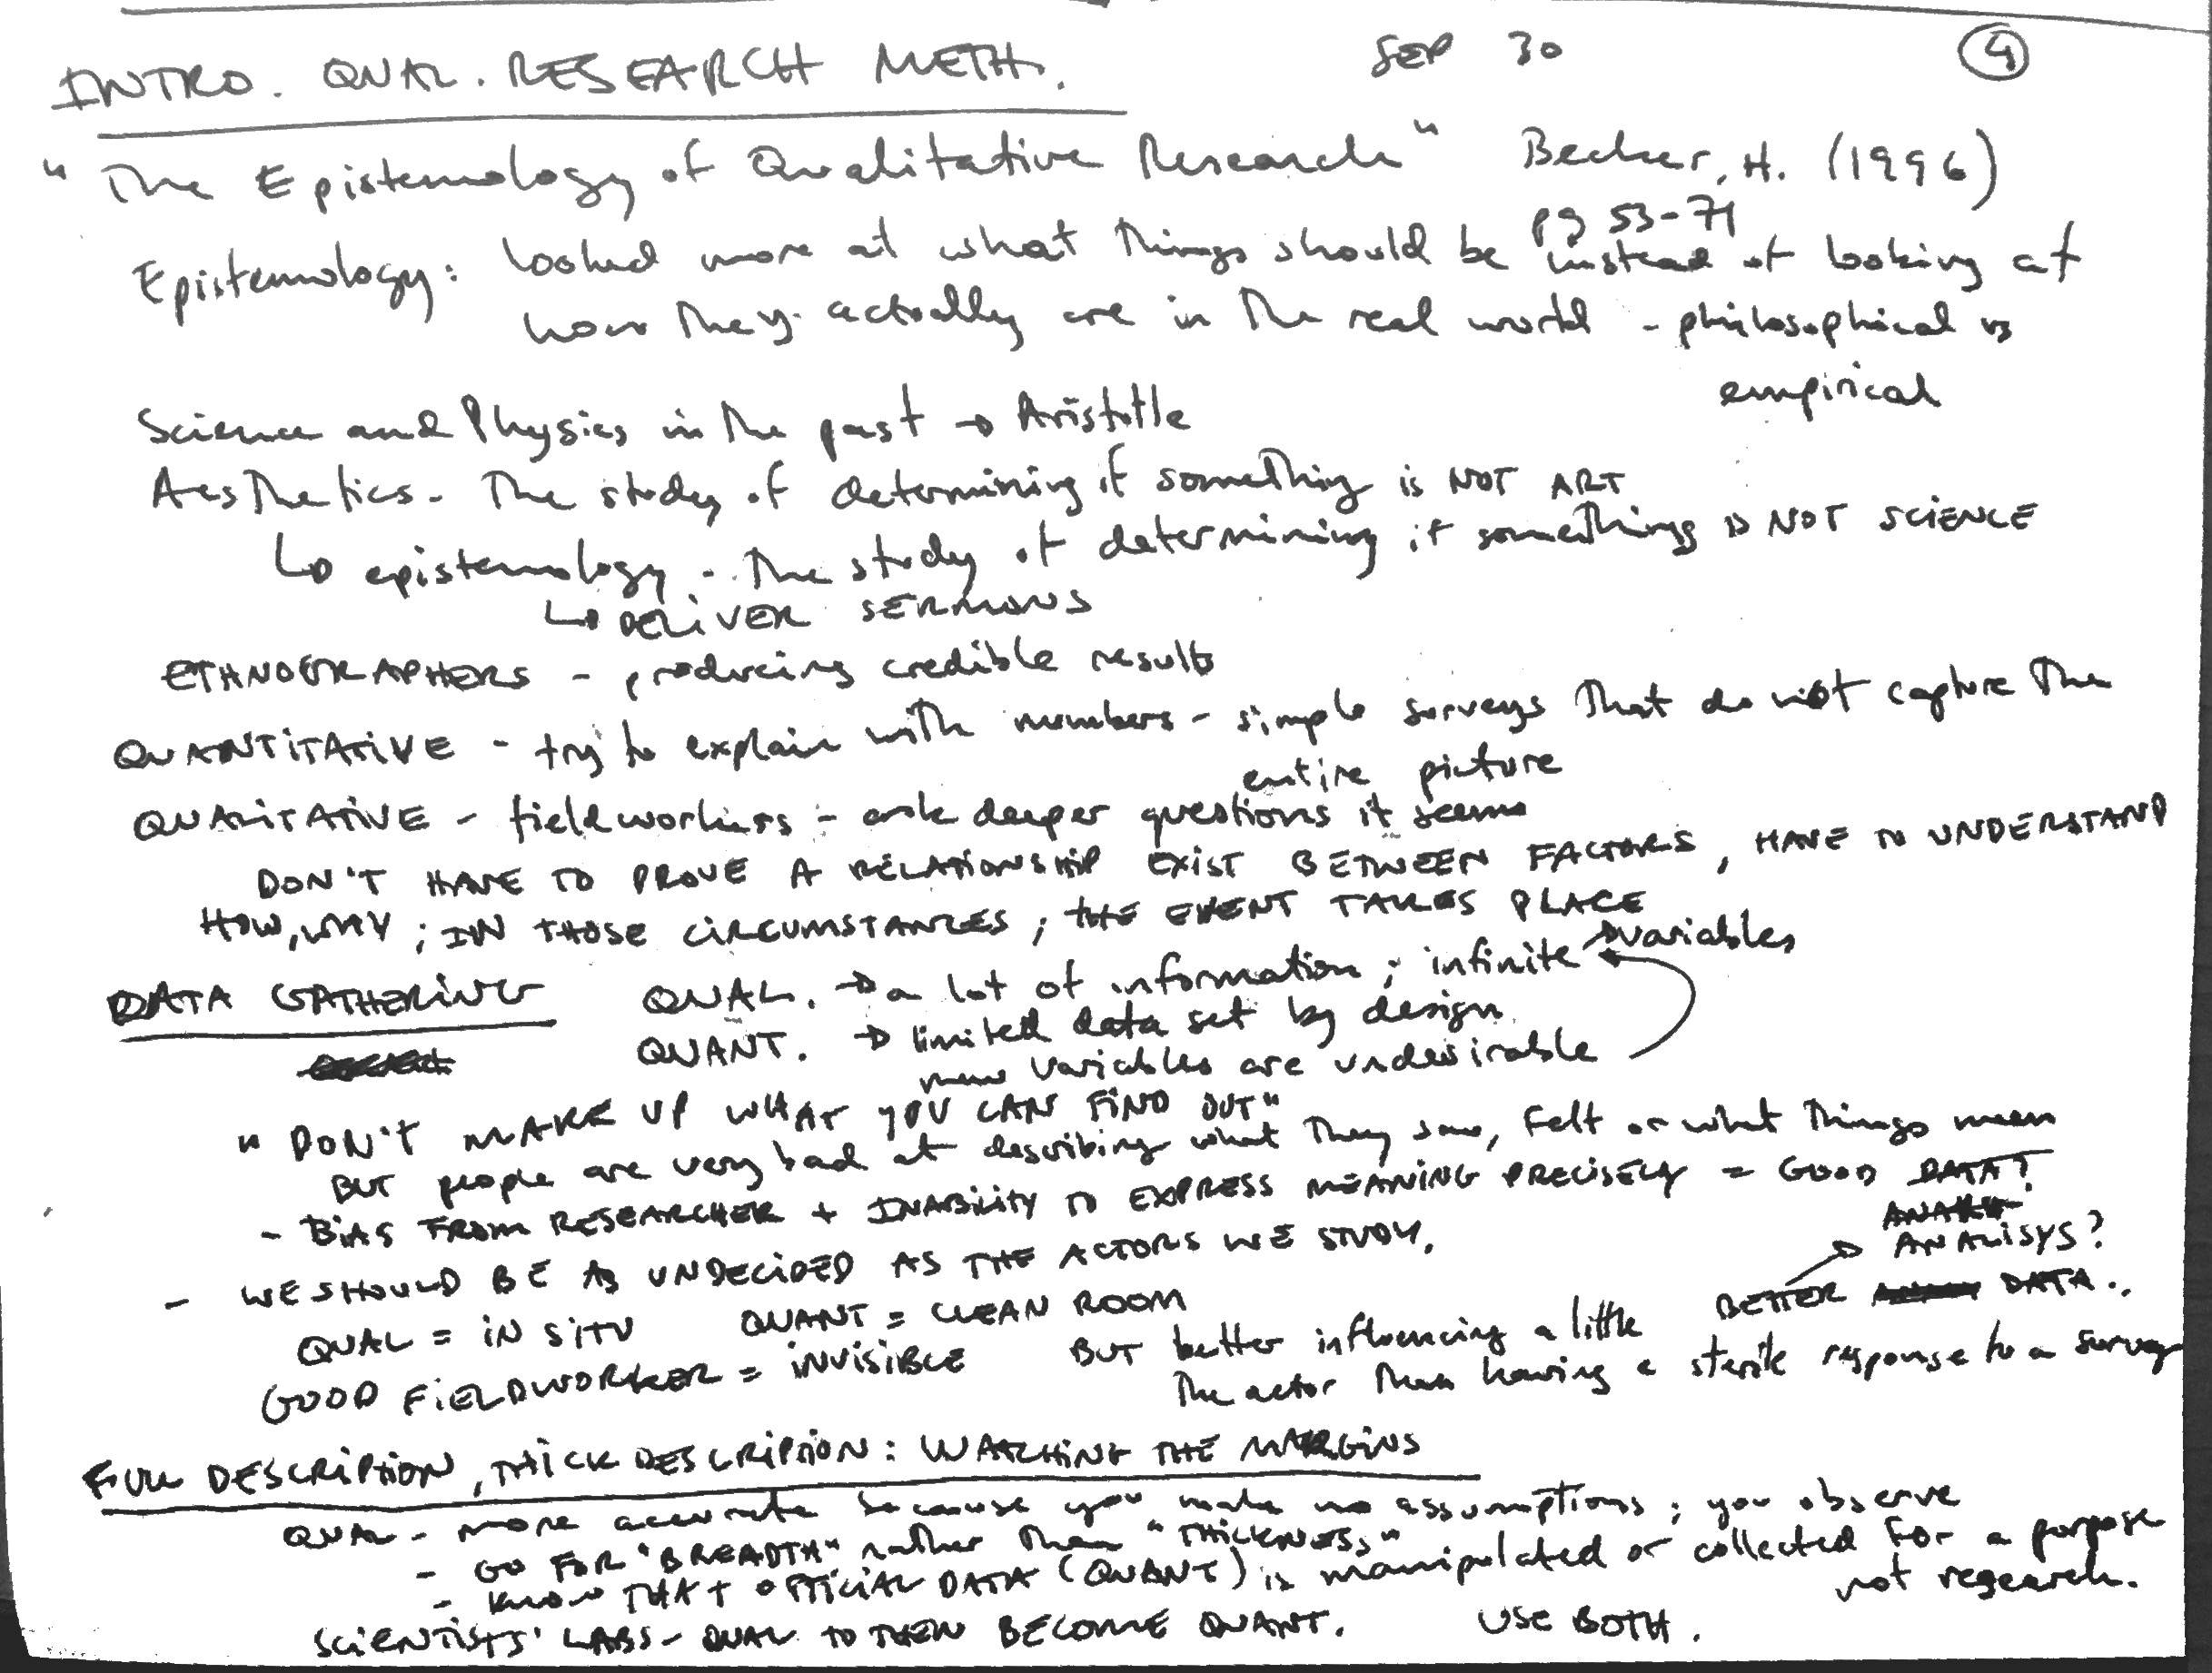 INTRO. QUAL. RESEARCH METH. SEP 30 4
"The Epistemology of Qualitative Research" Becker, H. (1996)
pg 53-71
Epistemology: looked more at what things should be instead of looking at
how they actually are in the real world - philosophical vs
empirical
Science and Physics in the past → Aristotle
Aesthetics - The study of determining if something is NOT ART
↳ epistemology - The study of determining if something is NOT SCIENCE
↳ DELIVER SERMONS
ETHNOGRAPHERS - producing credible results
QUANTITATIVE - try to explain with numbers - simple surveys that do not capture the
entire picture
QUALITATIVE - fieldworkers - ask deeper questions it seems
DON'T HAVE TO PROVE A RELATIONSHIP EXIST BETWEEN FACTORS, HAVE TO UNDERSTAND
HOW, WHY; IN THOSE CIRCUMSTANCES; THE EVENT TAKES PLACE
DATA GATHERING QUAL. → a lot of information; infinite → variables
QUANT. → limited data set by design
new variables are undesirable
"DON'T MAKE UP WHAT YOU CAN FIND OUT"
BUT people are very bad at describing what they saw, felt or what things mean
- BIAS FROM RESEARCHER + INABILITY TO EXPRESS MEANING PRECISELY = GOOD DATA?
ANALISYS?
- WE SHOULD BE AS UNDECIDED AS THE ACTORS WE STUDY.
BETTER DATA..
QUAL = IN SITU QUANT = CLEAN ROOM
GOOD FIELDWORKER = INVISIBLE BUT better influencing a little
the actor than having a sterile response to a survey
FULL DESCRIPTION, THICK DESCRIPTION: WATCHING THE MARGINS
QUAL - more accurate because you make no assumptions; you observe
- GO FOR "BREADTH" rather than "THICKNESS"
- KNOW THAT OFFICIAL DATA (QUANT) is manipulated or collected for a purpose
not research.
SCIENTISTS' LABS - QUAL TO THEN BECOME QUANT. USE BOTH.